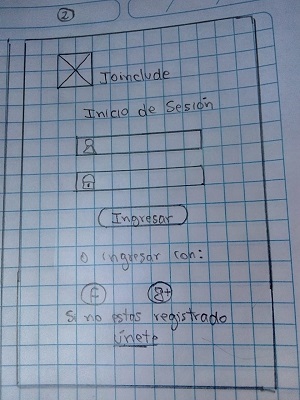 2
Joinclude
Inicio de Sesión
Ingresar
o ingresar con:
f g+
Si no estas registrado
únete